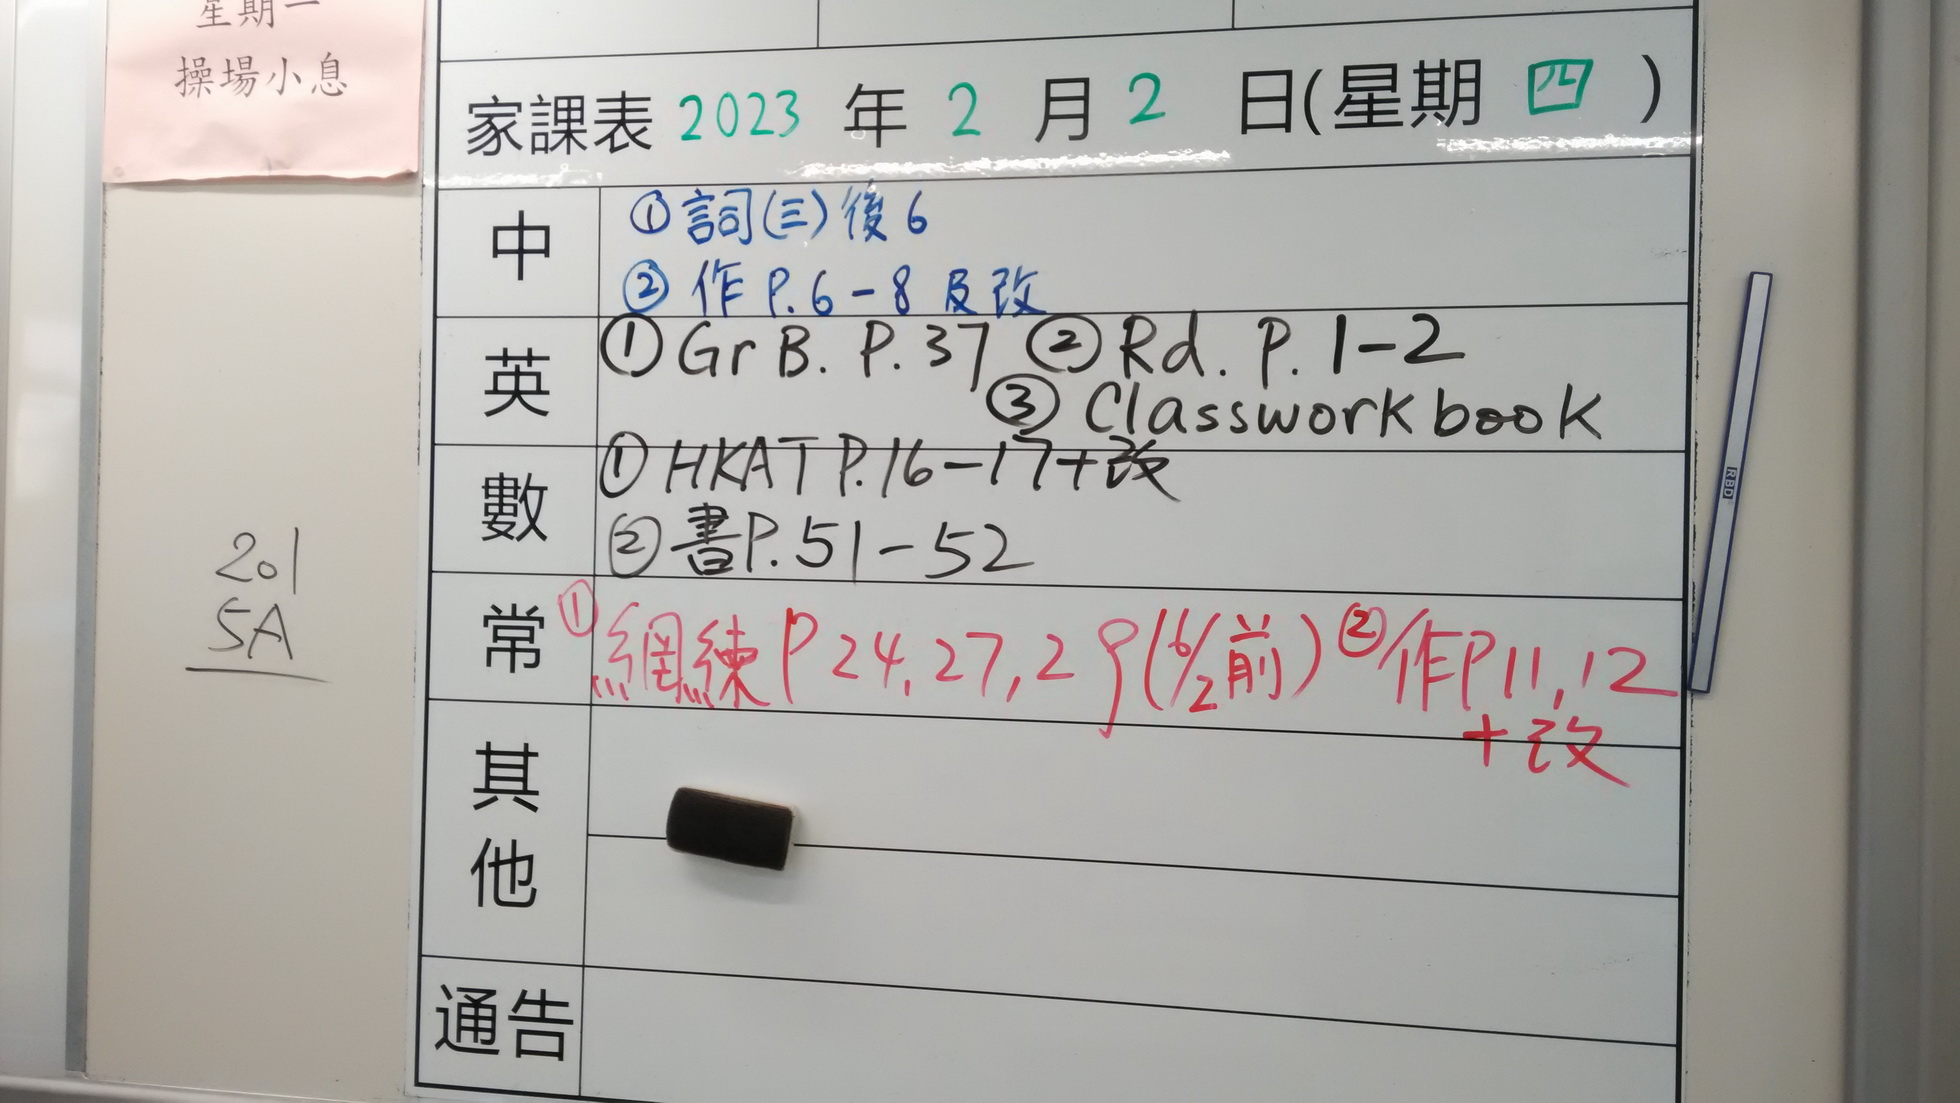 星期一
操場小息
家課表 2023 年 2 月 2 日(星期 四 )
中
①詞(三)後6
② 作 P.6-8 及改
英
① Gr B. P.37 ② Rd. P. 1-2
③ Classwork book
數
① HKAT P.16-17+改
② 書P.51-52
常
① 網練 P 24,27,29(6/2前) ②作P11,12
+改
其他
通告
201
5A
RBD